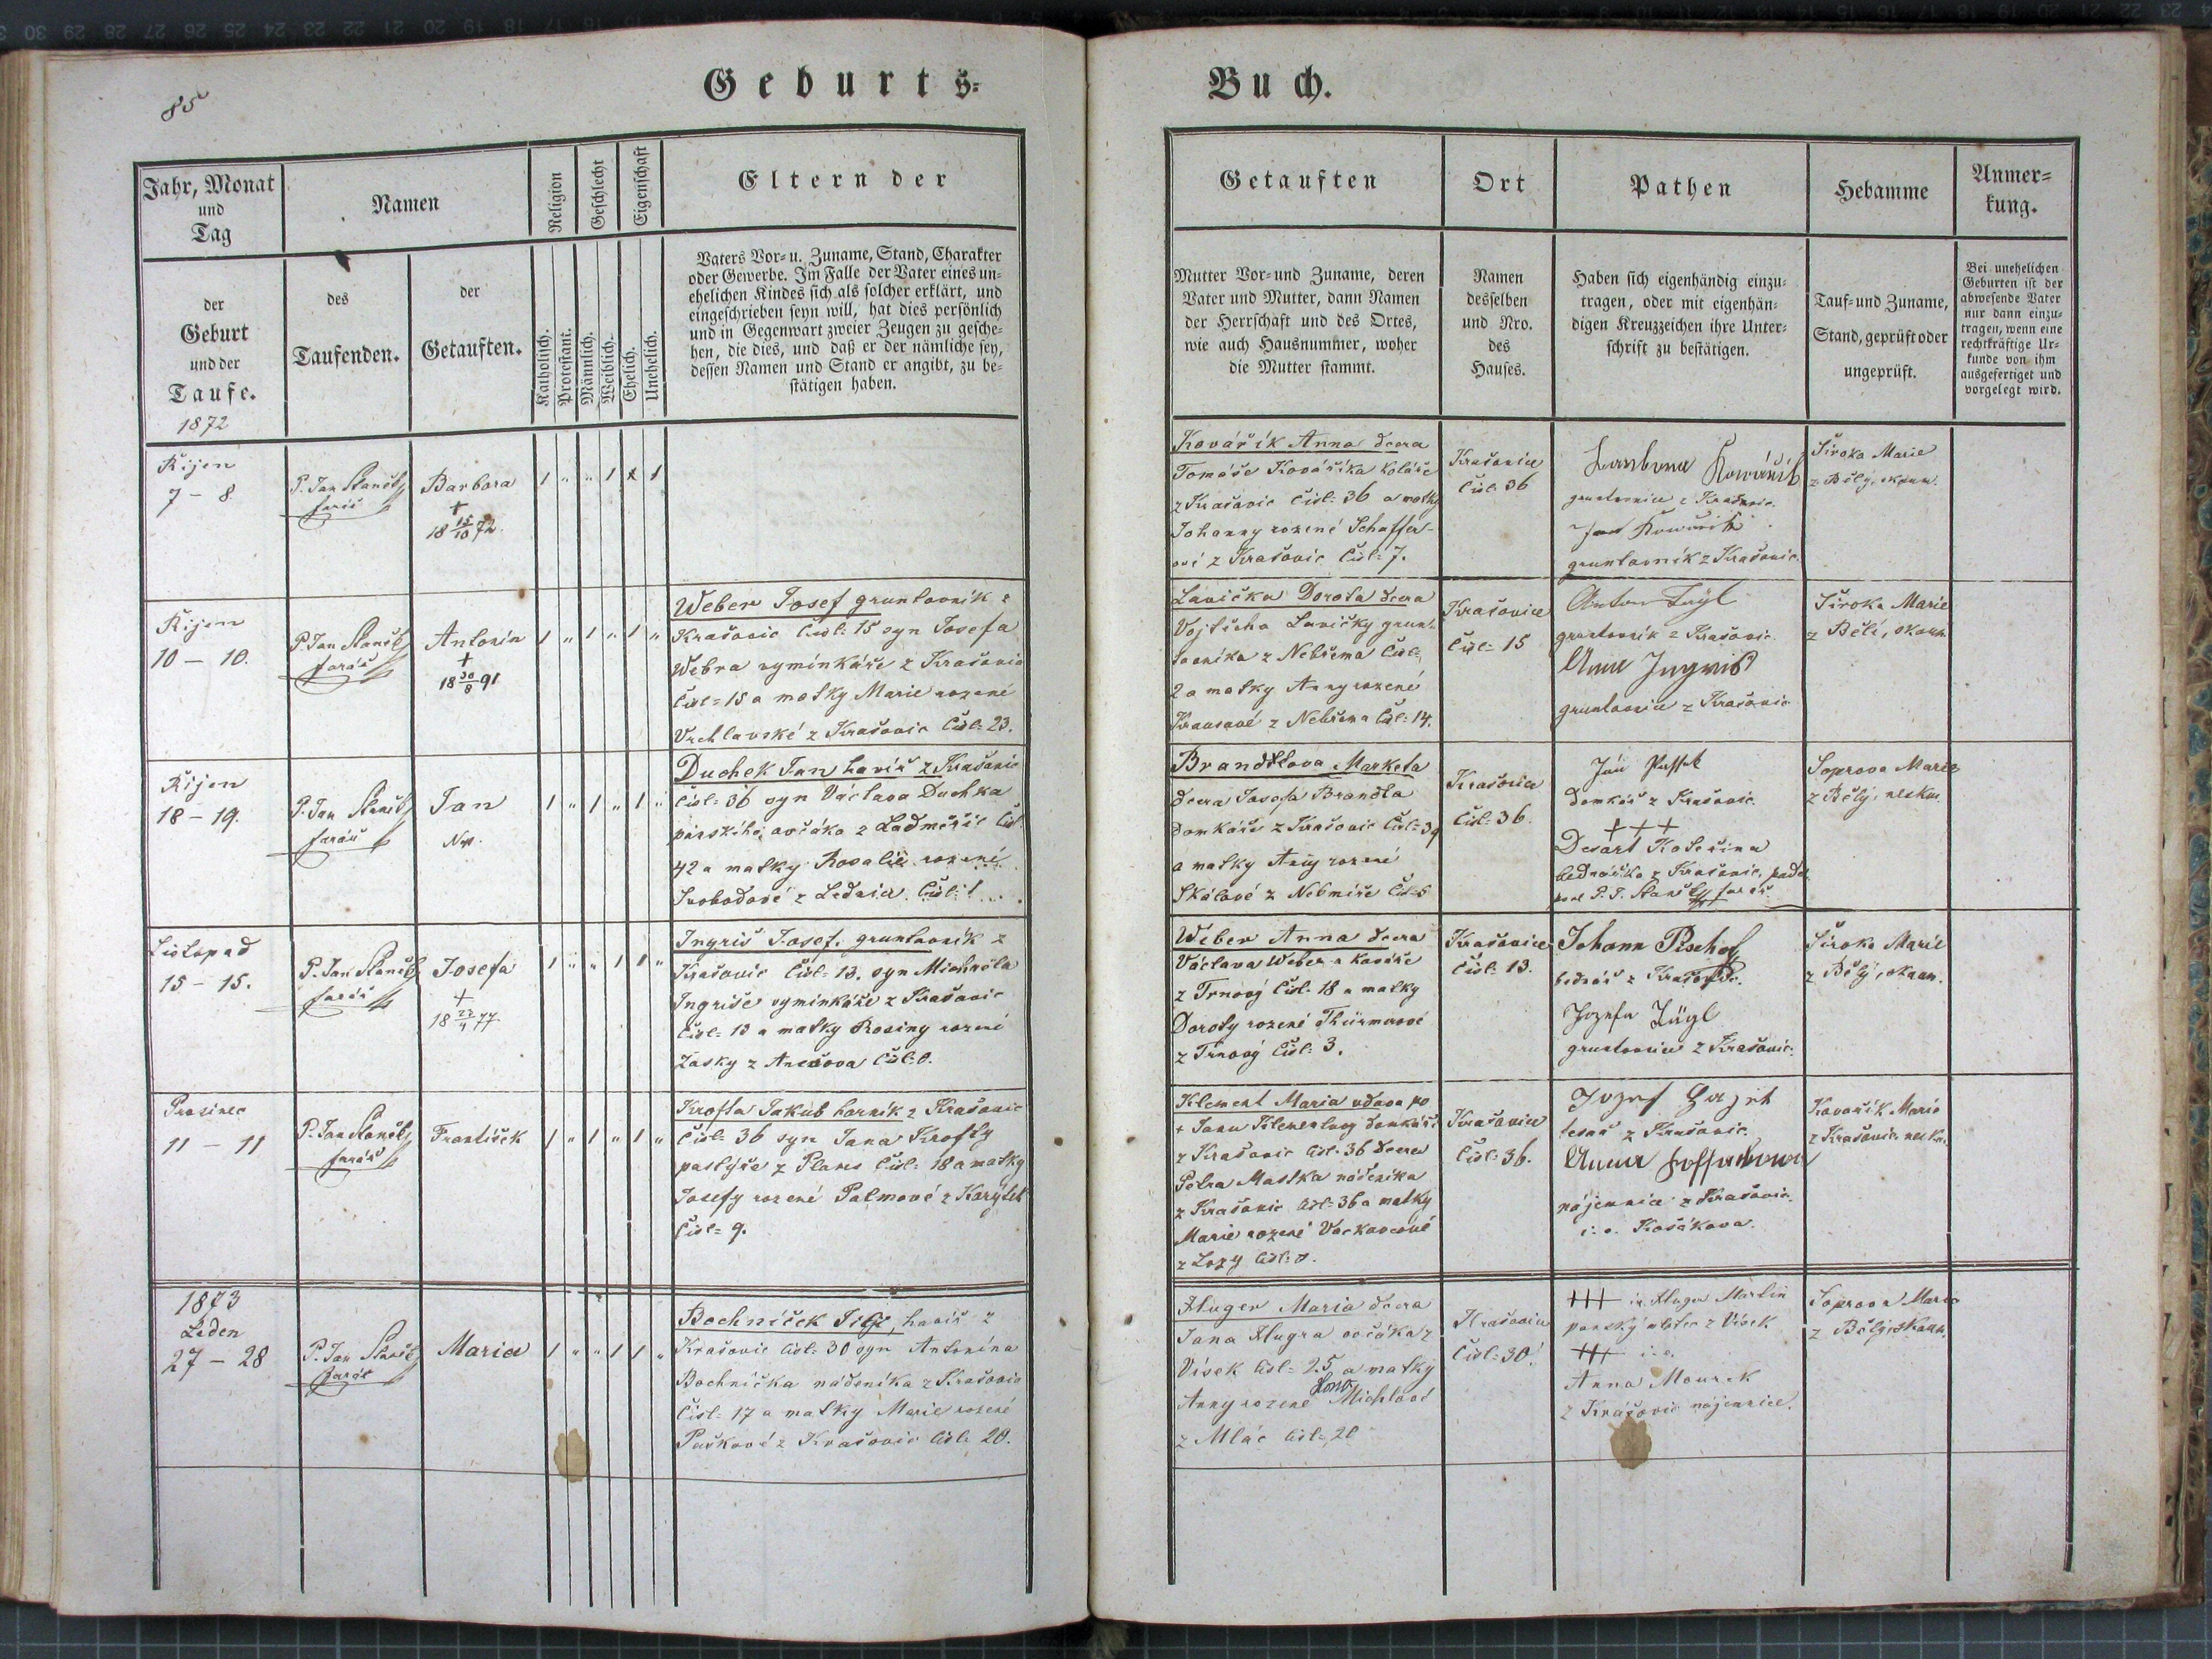 85
Geburts-
Buch.
Jahr, Monat
und
Tag
Namen
Religion
Geschlecht
Eigenschaft
Eltern der
der
Geburt
und der
Taufe.
1872
des
Taufenden.
der
Getauften.
Katholisch.
Protestant.
Männlich.
Weiblich.
Ehelich.
Unehelich.
Vaters Vor- u. Zuname, Stand, Charakter
oder Gewerbe. Im Falle der Vater eines un-
ehelichen Kindes sich als solcher erklärt, und
eingeschrieben seyn will, hat dies persönlich
und in Gegenwart zweier Zeugen zu gesche-
hen, die dies, und daß er der nämliche sey,
dessen Namen und Stand er angibt, zu be-
stätigen haben.
Getauften
Ort
Pathen
Hebamme
Anmer-
kung.
Mutter Vor- und Zuname, deren
Vater und Mutter, dann Namen
der Herrschaft und des Ortes,
wie auch Hausnummer, woher
die Mutter stammt.
Namen
desselben
und Nro.
des
Hauses.
Haben sich eigenhändig einzu-
tragen, oder mit eigenhän-
digen Kreuzzeichen ihre Unter-
schrift zu bestätigen.
Tauf- und Zuname,
Stand, geprüft oder
ungeprüft.
Bei unehelichen
Geburten ist der
abwesende Vater
nur dann einzu-
tragen, wenn eine
rechtkräftige Ur-
kunde von ihm
ausgefertiget und
vorgelegt wird.
Říjen
7 - 8
P. Jan
farář
Barbora
+
18 15/10 72.
1 „ „ 1 1
Kovářík Anna dcera
Tomáše Kováříka koláře
z Krašovic čísl: 36 a matky
Johanny rozené Schaffer-
ové z Krašovic čísl: 7.
Krašovice
čísl: 36
Kowářík
gruntovnice z Krašovic.
Jan Kowářík
gruntovník z Krašovic.
Široka Marie
z Bělý, zkouš.
Říjen
10 - 10.
P. Jan
farář
Antonín
+
18 30/8 91
1 „ 1 „ 1 „
Weber Josef gruntovník z
Krašovic čísl: 15 syn Josefa
Webra výminkáře z Krašovic
čísl= 15 a matky Marie rozené
Vrchlavské z Krašovic čísl: 23.
Lavička Dorota dcera
Vojtěcha Lavičky grun-
tovníka z Nebřema čísl:
2 a matky Anny rozené
Krausové z Nebřema čísl: 14.
Krašovice
čísl= 15
Anton
gruntovník z Krašovic
Anna Ingriš
gruntovnice z Krašovic
Široka Marie
z Bělé, zkouš.
Říjen
18 - 19.
P. Jan
farář
Jan
Nep.
1 „ 1 „ 1 „
Duchek Jan havíř z Krašovic
čísl= 36 syn Václava Duchka
panského ovčáka z Ladměřic čísl
42 a matky Rosalie rozené
Svobodové z Lednice čísl: 1
Brandtlova Marketa
dcera Josefa Brandla
domkáře z Krašovic čísl= 39
a matky Anny rozené
Skálové z Nebmíře čísl: 5
Krašovice
čísl= 36.
Ján
domkář z Krašovic.
+ + +
Kateřina
bednářka z Krašovic,
Soprova Marie
z Bělý, nezkou.
Listopad
15 - 15.
P. Jan
farář
Josefa
+
18 77.
1 „ „ 1 1 „
Ingriš Josef, gruntovník z
Krašovic čísl= 13. syn Michaela
Ingriše výminkáře z Krašovic
čísl= 13 a matky Rosiny rozené
z čísl: 8.
Weber Anna dcera
Václava Weber a kováře
z Trnový čísl. 18 a matky
Doroty rozené Thürmerové
z Trnový čísl: 3.
Krašovice
čísl: 13.
Johann
bednář z Krašovic.
Jozefa
gruntovnice z Krašovic.
Široka Marie
z Bělý, zkouš.
Prosinec
11 - 11
P. Jan
farář
František
1 „ 1 „ 1 „
Krofta Jakub horník z Krašovic
čísl= 36 syn Jana Krofty
pastýře z Planes čísl: 18 a matky
Josefy rozené Palmové z Korýtek
čísl= 9.
Klement Maria vdova po
+ Janu Klementovy domkáři
z Krašovic čísl. 36 dcera
Petra Mastka nádeníka
z Krašovic čísl= 36 a matky
Marie rozené Vackavcové
z Lozy čísl: 8.
Krašovice
čísl: 36.
Jozef
tesař z Krašovic.
Anna
nájemnice z Krašovic.
i: e. Košákova.
Kovařík Marie
z Krašovic, nezkou.
1873
Leden
27 - 28
P. Jan
farář
Maria
1 „ „ 1 1 „
Bochníček Jiljí, havíř z
Krašovic čísl= 30 syn Antonína
Bochníčka nádeníka z Krašovic
čísl= 17 a matky Marie rozené
Paškové z Krašovic čísl: 20.
Huger Maria dcera
Jana Hugra ovčáka z
Vísek čísl= 25 a matky
Anny rozené Michlové
z Mlac čísl: 20
Krašovice
čísl= 30.
+++ i:e. Huger Martin
panský z Vísek
+++ i: e.
Anna Mourek
z Krašovic nájemnice.
Soprova Marie
z Bělý, zkouš.